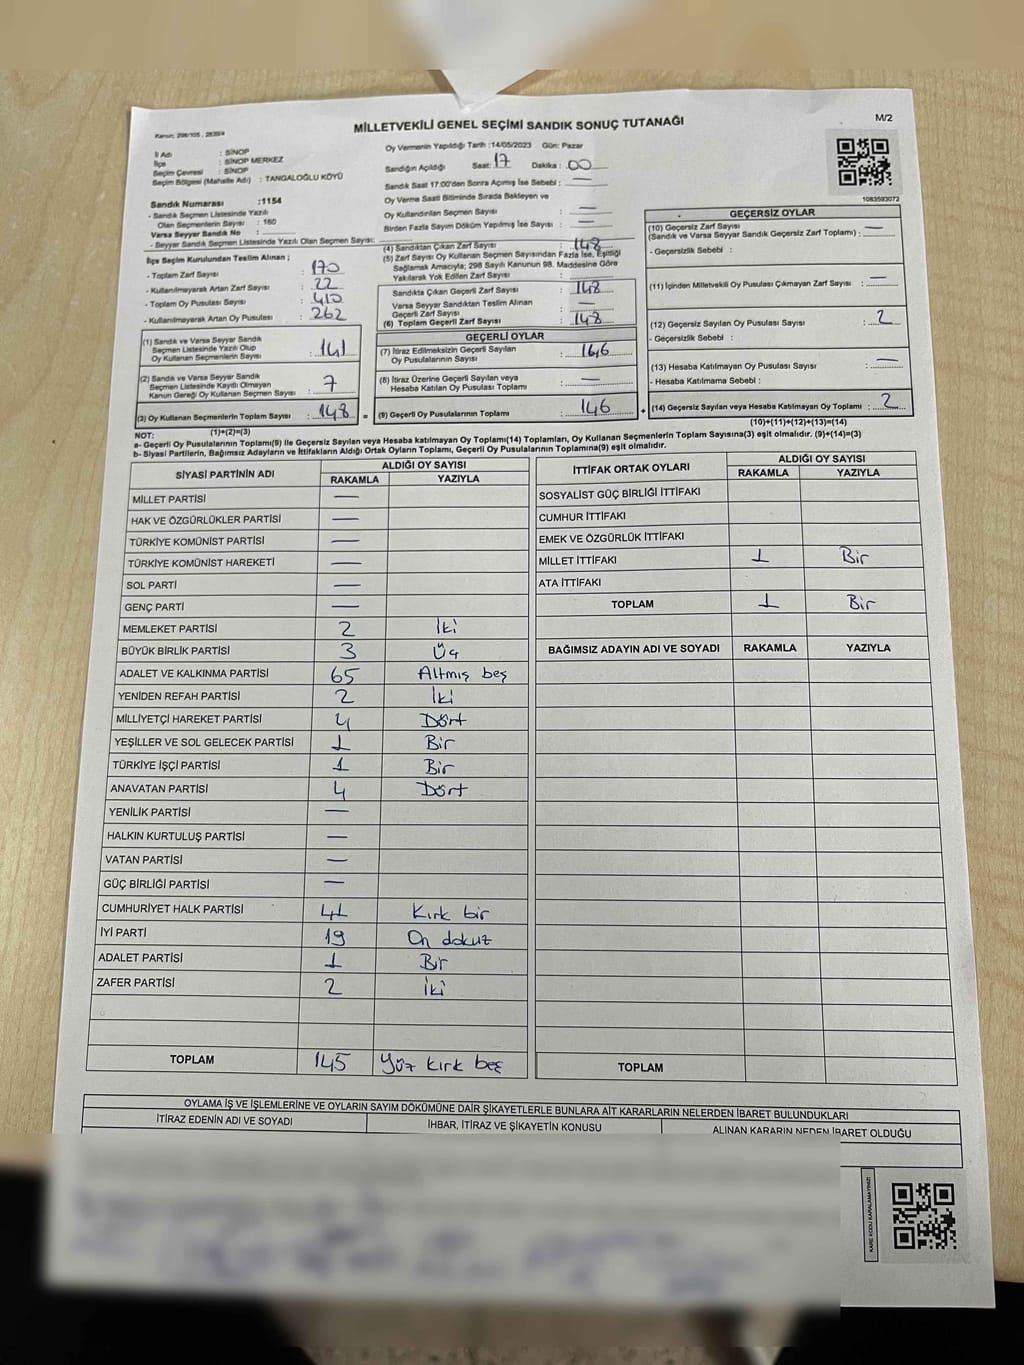 MİLLETVEKİLİ GENEL SEÇİMİ SANDIK SONUÇ TUTANAĞI
M/2
İl Adı : SİNOP
İlçe : SİNOP MERKEZ
Seçim Çevresi : SİNOP
Seçim Bölgesi (Mahalle Adı) : TANGALOĞLU KÖYÜ
Sandık Numarası :1154
- Sandık Seçmen Listesinde Yazılı
Olan Seçmenlerin Sayısı : 160
Varsa Seyyar Sandık No :
- Seyyar Sandık Seçmen Listesinde Yazılı Olan Seçmen Sayısı:
İlçe Seçim Kurulundan Teslim Alınan ;
- Toplam Zarf Sayısı : 170
- Kullanılmayarak Artan Zarf Sayısı : 22
- Toplam Oy Pusulası Sayısı : 410
- Kullanılmayarak Artan Oy Pusulası : 262
(1) Sandık ve Varsa Seyyar Sandık
Seçmen Listesinde Yazılı Olup
Oy Kullanan Seçmenlerin Sayısı : 141
(2) Sandık ve Varsa Seyyar Sandık
Seçmen Listesinde Kayıtlı Olmayan
Kanun Gereği Oy Kullanan Seçmen Sayısı : 7
(3) Oy Kullanan Seçmenlerin Toplam Sayısı : 148 =
(1)+(2)=(3)
Oy Vermenin Yapıldığı Tarih :14/05/2023 Gün: Pazar
Sandığın Açıldığı Saat: 17 Dakika : 00
Sandık Saat 17:00'den Sonra Açımış İse Sebebi : —
Oy Verme Saati Bitiminde Sırada Bekleyen ve
Oy Kullandırılan Seçmen Sayısı : —
Birden Fazla Sayım Döküm Yapılmış İse Sayısı : —
(4) Sandıktan Çıkan Zarf Sayısı : 148
(5) Zarf Sayısı Oy Kullanan Seçmen Sayısından Fazla İse, Eşitliği
Sağlamak Amacıyla; 298 Sayılı Kanunun 98. Maddesine Göre
Yakılarak Yok Edilen Zarf Sayısı :
Sandıkta Çıkan Geçerli Zarf Sayısı : 148
Varsa Seyyar Sandıktan Teslim Alınan
Geçerli Zarf Sayısı : —
(6) Toplam Geçerli Zarf Sayısı : 148
GEÇERLİ OYLAR
(7) İtiraz Edilmeksizin Geçerli Sayılan
Oy Pusulalarının Sayısı : 146
(8) İtiraz Üzerine Geçerli Sayılan veya
Hesaba Katılan Oy Pusulası Toplamı : —
(9) Geçerli Oy Pusulalarının Toplamı : 146 +
1083593072
GEÇERSİZ OYLAR
(10) Geçersiz Zarf Sayısı
(Sandık ve Varsa Seyyar Sandık Geçersiz Zarf Toplamı) : —
- Geçersizlik Sebebi :
(11) İçinden Milletvekili Oy Pusulası Çıkmayan Zarf Sayısı : —
(12) Geçersiz Sayılan Oy Pusulası Sayısı : 2
- Geçersizlik Sebebi :
(13) Hesaba Katılmayan Oy Pusulası Sayısı : —
- Hesaba Katılmama Sebebi :
(14) Geçersiz Sayılan veya Hesaba Katılmayan Oy Toplamı : 2
(10)+(11)+(12)+(13)=(14)
NOT:
a- Geçerli Oy Pusulalarının Toplamı(9) ile Geçersiz Sayılan veya Hesaba katılmayan Oy Toplamı(14) Toplamları, Oy Kullanan Seçmenlerin Toplam Sayısına(3) eşit olmalıdır. (9)+(14)=(3)
b- Siyasi Partilerin, Bağımsız Adayların ve İttifakların Aldığı Ortak Oyların Toplamı, Geçerli Oy Pusulalarının Toplamına(9) eşit olmalıdır.
SİYASİ PARTİNİN ADI ALDIĞI OY SAYISI
RAKAMLA YAZIYLA
MİLLET PARTİSİ —
HAK VE ÖZGÜRLÜKLER PARTİSİ —
TÜRKİYE KOMÜNİST PARTİSİ —
TÜRKİYE KOMÜNİST HAREKETİ —
SOL PARTİ —
GENÇ PARTİ —
MEMLEKET PARTİSİ 2 İki
BÜYÜK BİRLİK PARTİSİ 3 Üç
ADALET VE KALKINMA PARTİSİ 65 Altmış beş
YENİDEN REFAH PARTİSİ 2 İki
MİLLİYETÇİ HAREKET PARTİSİ 4 Dört
YEŞİLLER VE SOL GELECEK PARTİSİ 1 Bir
TÜRKİYE İŞÇİ PARTİSİ 1 Bir
ANAVATAN PARTİSİ 4 Dört
YENİLİK PARTİSİ —
HALKIN KURTULUŞ PARTİSİ —
VATAN PARTİSİ —
GÜÇ BİRLİĞİ PARTİSİ —
CUMHURİYET HALK PARTİSİ 41 Kırk bir
İYİ PARTİ 19 On dokuz
ADALET PARTİSİ 1 Bir
ZAFER PARTİSİ 2 İki
TOPLAM 145 Yüz kırk beş
İTTİFAK ORTAK OYLARI ALDIĞI OY SAYISI
RAKAMLA YAZIYLA
SOSYALİST GÜÇ BİRLİĞİ İTTİFAKI
CUMHUR İTTİFAKI
EMEK VE ÖZGÜRLÜK İTTİFAKI
MİLLET İTTİFAKI 1 Bir
ATA İTTİFAKI
TOPLAM 1 Bir
BAĞIMSIZ ADAYIN ADI VE SOYADI RAKAMLA YAZIYLA
TOPLAM
OYLAMA İŞ VE İŞLEMLERİNE VE OYLARIN SAYIM DÖKÜMÜNE DAİR ŞİKAYETLERLE BUNLARA AİT KARARLARIN NELERDEN İBARET BULUNDUKLARI
İTİRAZ EDENİN ADI VE SOYADI İHBAR, İTİRAZ VE ŞİKAYETİN KONUSU ALINAN KARARIN NEDEN İBARET OLDUĞU
KARE KODU KARALAMAYINIZ!